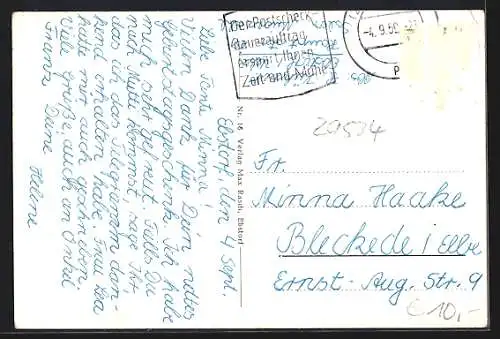 Ebstorf, den 4 Sept.
Liebe Tante Minna!
Vielen Dank für Dein nettes
Geburtstagsgeschenk. Ich habe
mich sehr gefreut. Falls Du
nach Mutti kommst, sage Ihr
das ich das Telegramm dan-
kend erhalten habe. Frau
hatte mir auch geschrieben.
Viele Grüße, auch an Onkel
Deine
Helene
Der Postscheck-
Dauerauftrag
erspart Ihnen
Zeit und Mühe
-4.9.
Nr. 16 Verlag Max Rasch, Ebstorf
20534
Fr.
Minna Haake
Bleckede / Elbe
Ernst-Aug. Str. 9
€ 10,-